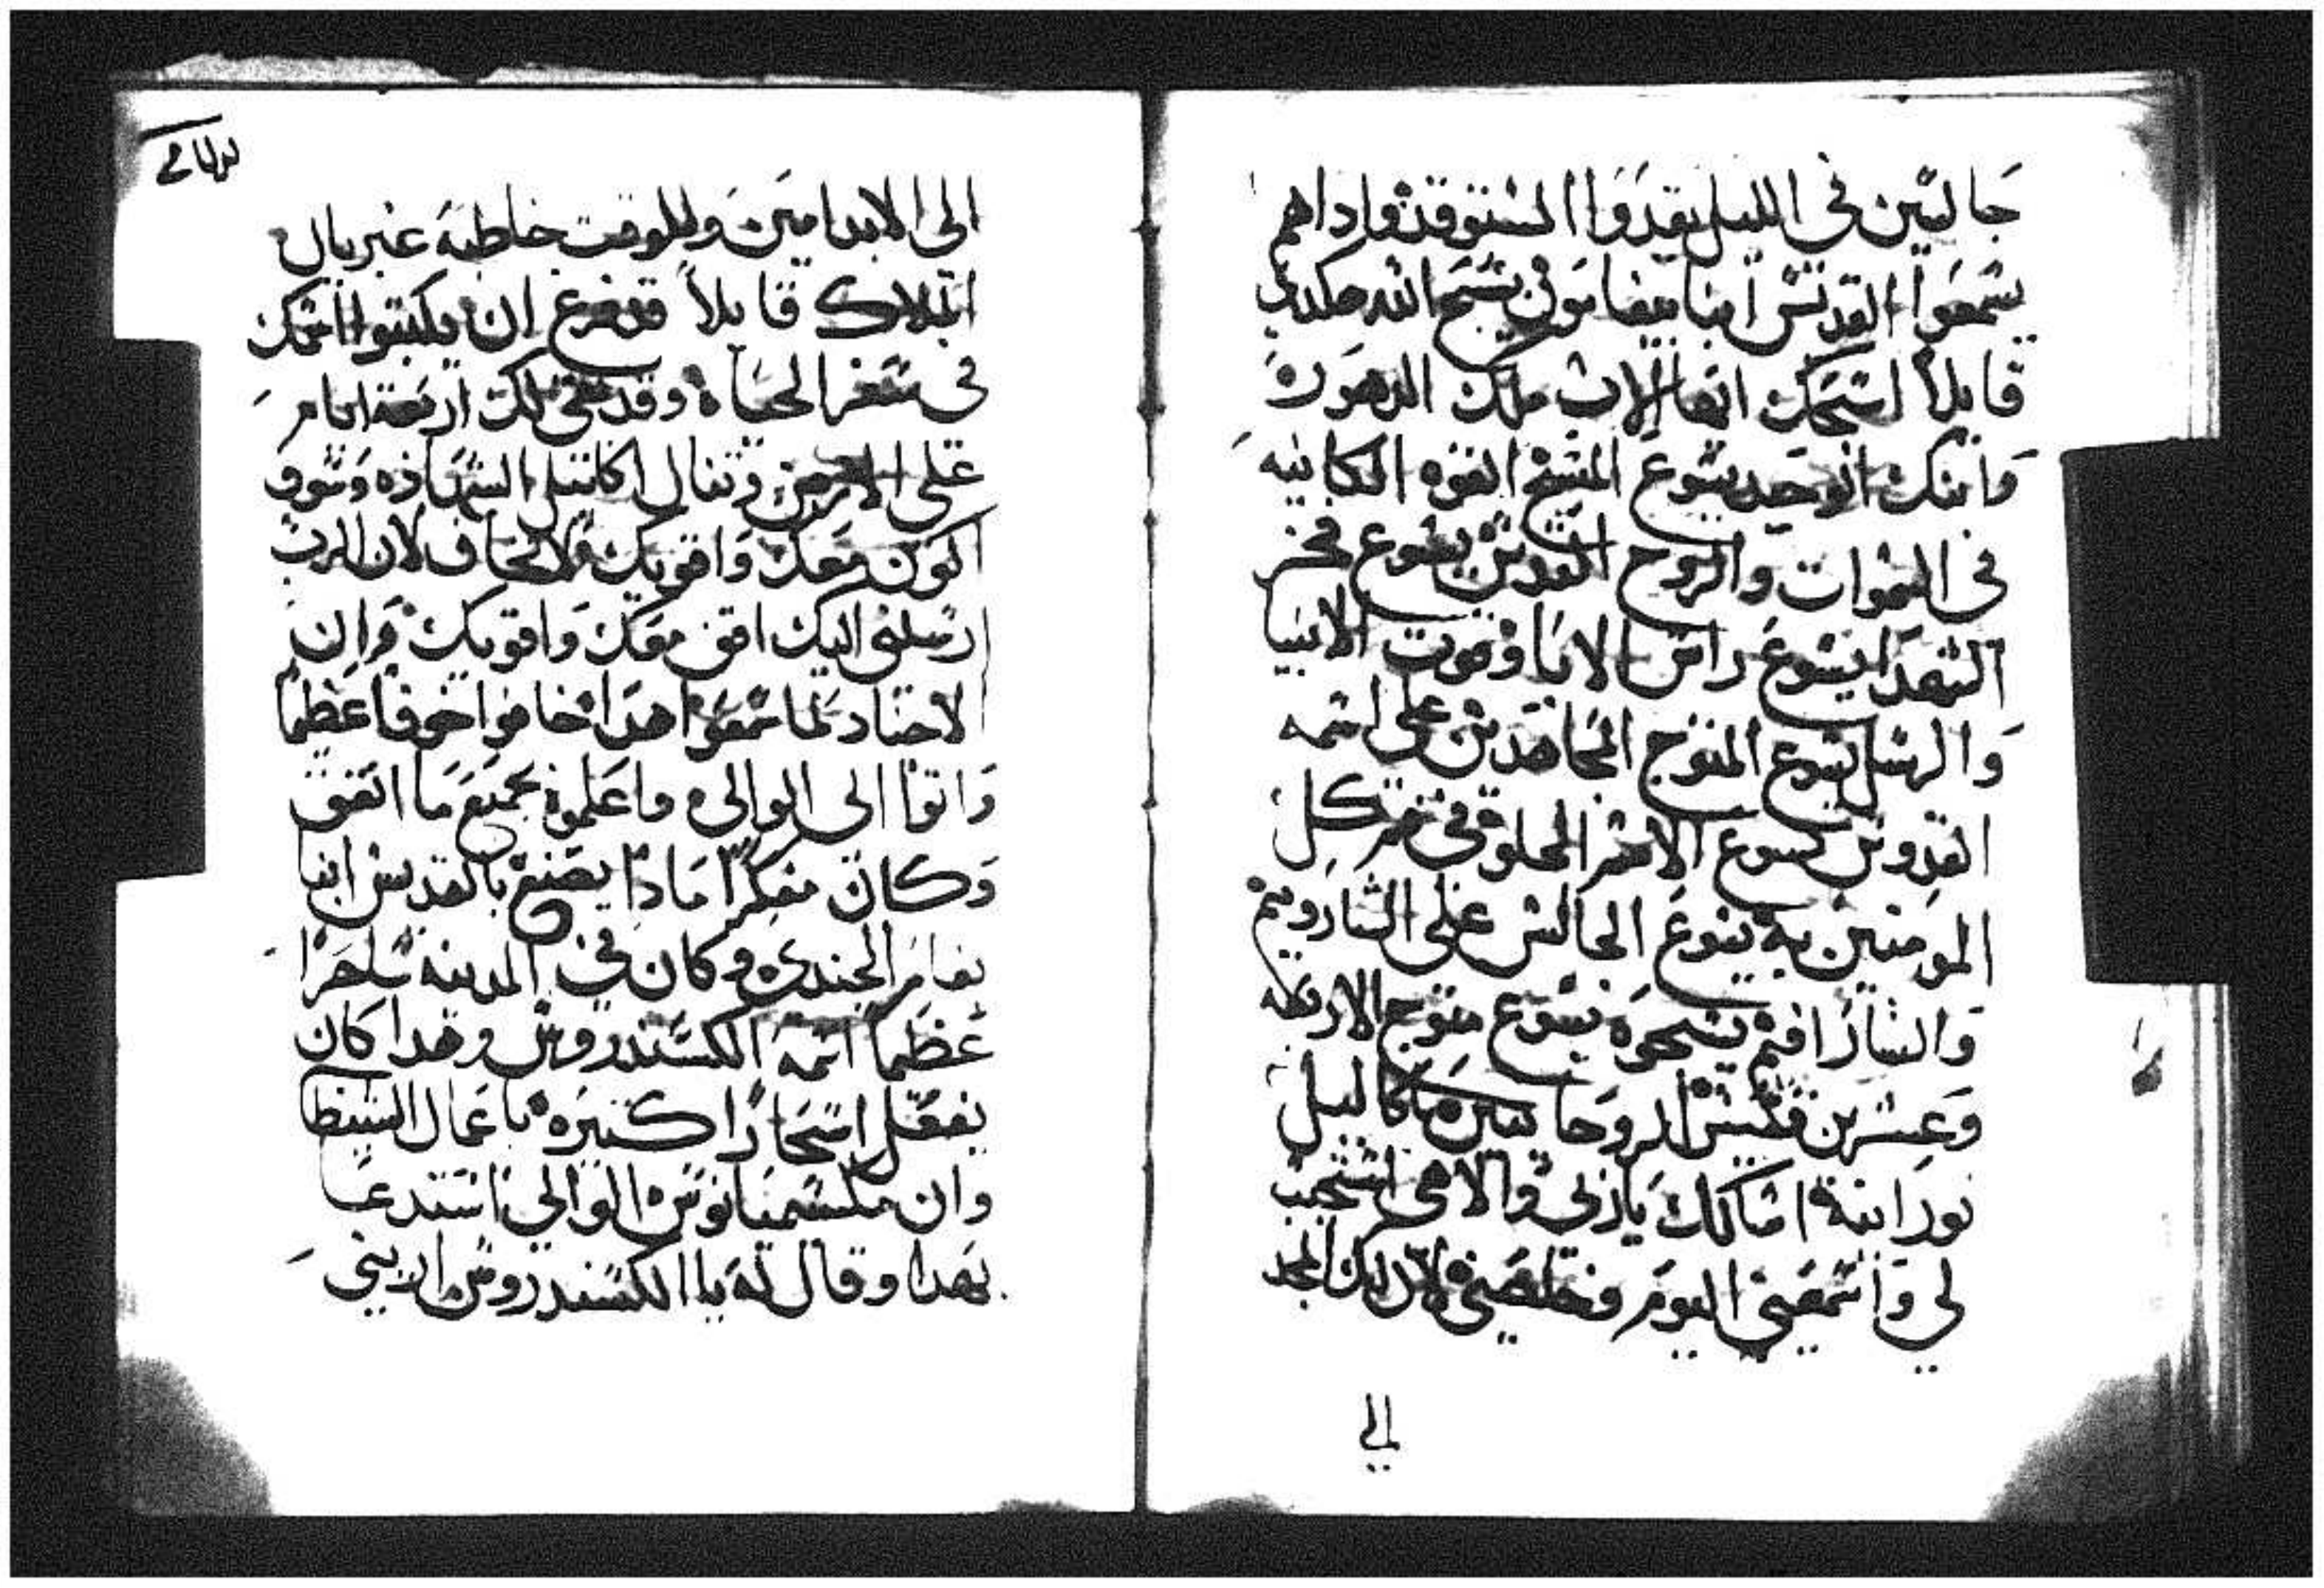 جالسين في الليل يقدوا المستوقد واداهم
يسمعوا القديس انبا بيفامون يسبح الله هكدي
قايلاً اسبحك ايها الاب ملك الدهور
وابنك الوحيد يسوع المسيح القوه الكاينه
في السموات والروح القدس يسوع فخر
الشهدا يسوع راس الابا وقوت الانبيا
والرسل يسوع المتوج المجاهدين على اسمه
القدوس يسوع الاسم الحلو في فم كل
المومنين به يسوع الجالس على الشاروبيم
والسارافيم يسبحوه يسوع متوج الاربعه
وعشرين قسيس الروحانيين ماكاليل
نورانية اسالك ياربي والاهي استجيب
لي واسمعني اليوم وخلصني لان لك المجد
الي
الى الابد امين وللوقت خاطبه غبريال
الملاك قايلاً قد فرغ ان يكتبوا اسمك
في سفر الحياه وقد بقى لك اربعة ايام
على الارض وتنال اكاليل الشهاده وسوف
اكون معك واقويك فلا تخاف لان الرب
ارسلني اليك اقف معك واقويك وان
الاجناد لما سمعوا هدا خافوا خوفاً عظيماً
واتوا الى الوالي واعلموه بجميع ما اتفق
وكان مفكراً مادا يصنع بالقديس ابنا
بفام الجندي وكان في المدينه ساحراً
عظيماً اسمه الكسندروس وهدا كان
يفعل اسحاراً كثيره باعمال الشيطا
وان مكسيميانوس الوالي استدعا
بهدا وقال له يا الكسندروس اريني